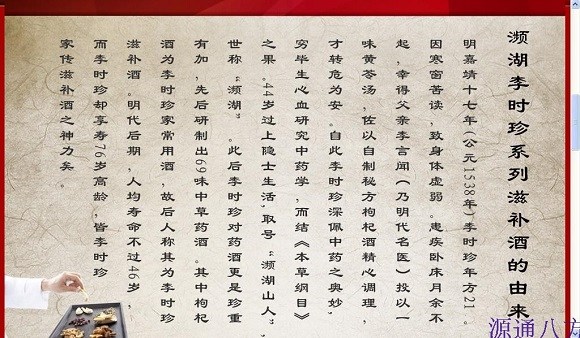 濒湖李时珍系列滋补酒的由来
明嘉靖十七年(公元1538年)李时珍年方21。
因寒窗苦读,致身体虚弱。患疾卧床月余不
起,幸得父亲李言闻(乃明代名医)投以一
味黄芩汤,佐以自制秘方枸杞酒精心调理,
才转危为安。自此李时珍深佩中药之奥妙,
穷毕生心血研究中药学,而结《本草纲目》
之果。44岁过上隐士生活,取号“濒湖山人”,
世称“濒湖”。此后李时珍对药酒更是珍重
有加,先后研制出69味中草药酒。其中枸杞
酒为李时珍家常用酒,故后人称其为李时珍
滋补酒。明代后期,人均寿命不过46岁,
而李时珍却享寿76岁高龄,皆李时珍
家传滋补酒之神力矣。
源通八方